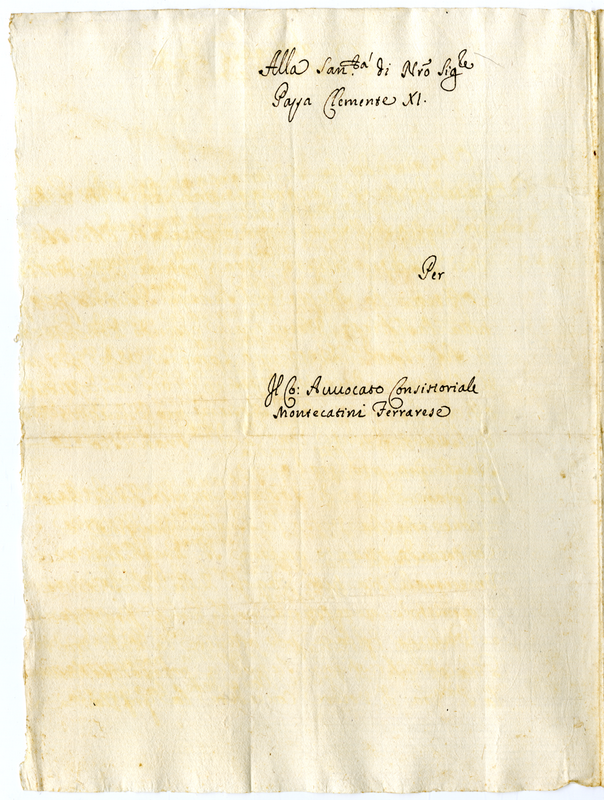 Alla San.ta' di Nrõ Sigre
Papa Clemente XI.
Per
Il Co: Auuocato Consistoriale
Montecatini Ferrarese